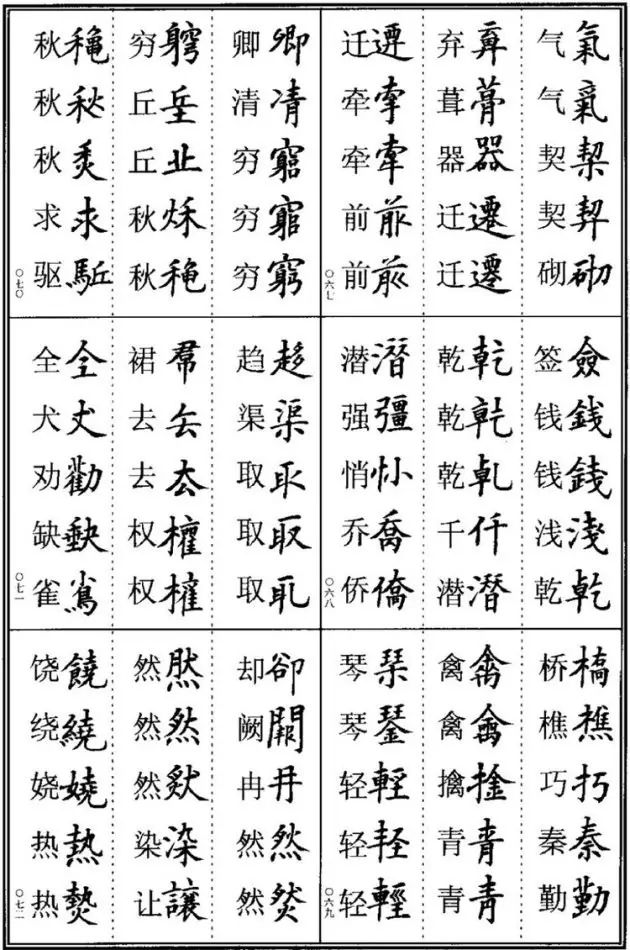 气氣气氣契栔契契砌砌
弃弃葺葺器器迁遷迁遷
迁遷牵牽牵牽前前前前
〇六七
签僉钱錢钱錢浅淺乾乾
乾乾乾乾乾乹千仟潜潛
潜潛强彊悄悄乔喬侨僑
〇六八
桥橋樵樵巧巧秦秦勤勤
禽禽禽禽擒擒青青青青
琴琴琴琴轻輕轻軽轻輕
〇六九
卿卿清凊穷窮穷窮穷窮
穷竆丘坵丘丘秋秌秋龝
秋龝秋秋秋秋求求驱駈
〇七〇
趋趍渠渠取取取取取取
裙帬去去去厺权權权權
全仝犬犬劝勸缺缺雀雀
〇七一
却卻阙闕冉冄然然然然
然然然然然然染染让讓
饶饒绕繞娆嬈热熱热熱
〇七二